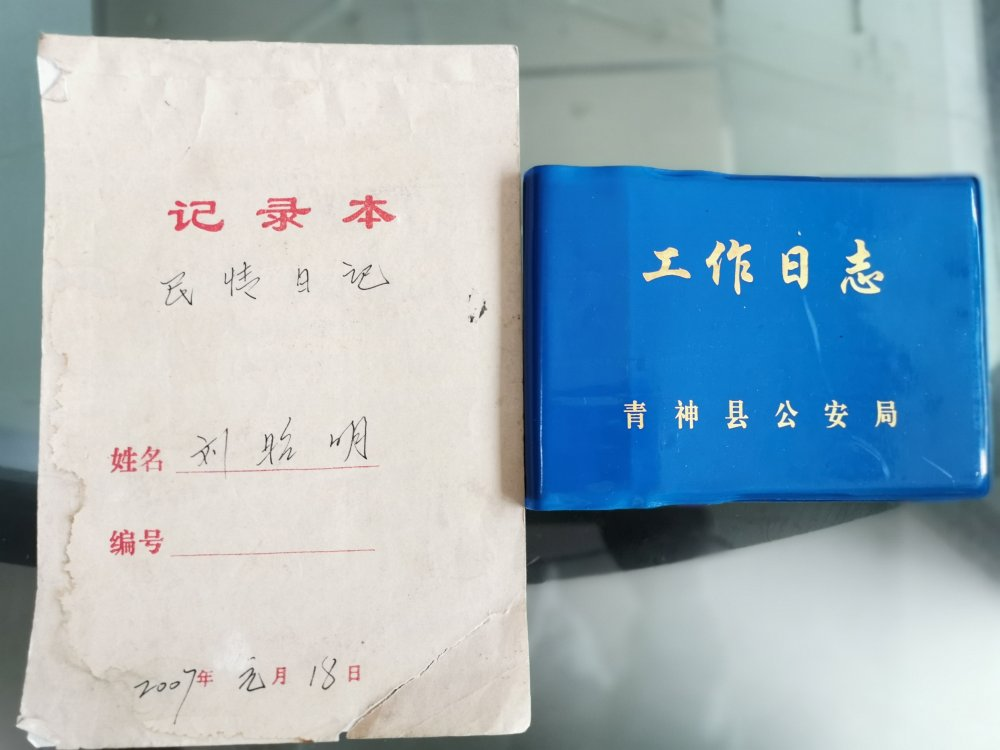 记录本
民情日记
姓名 刘昭明
编号
2007年 元月 18日
工作日志
青神县公安局